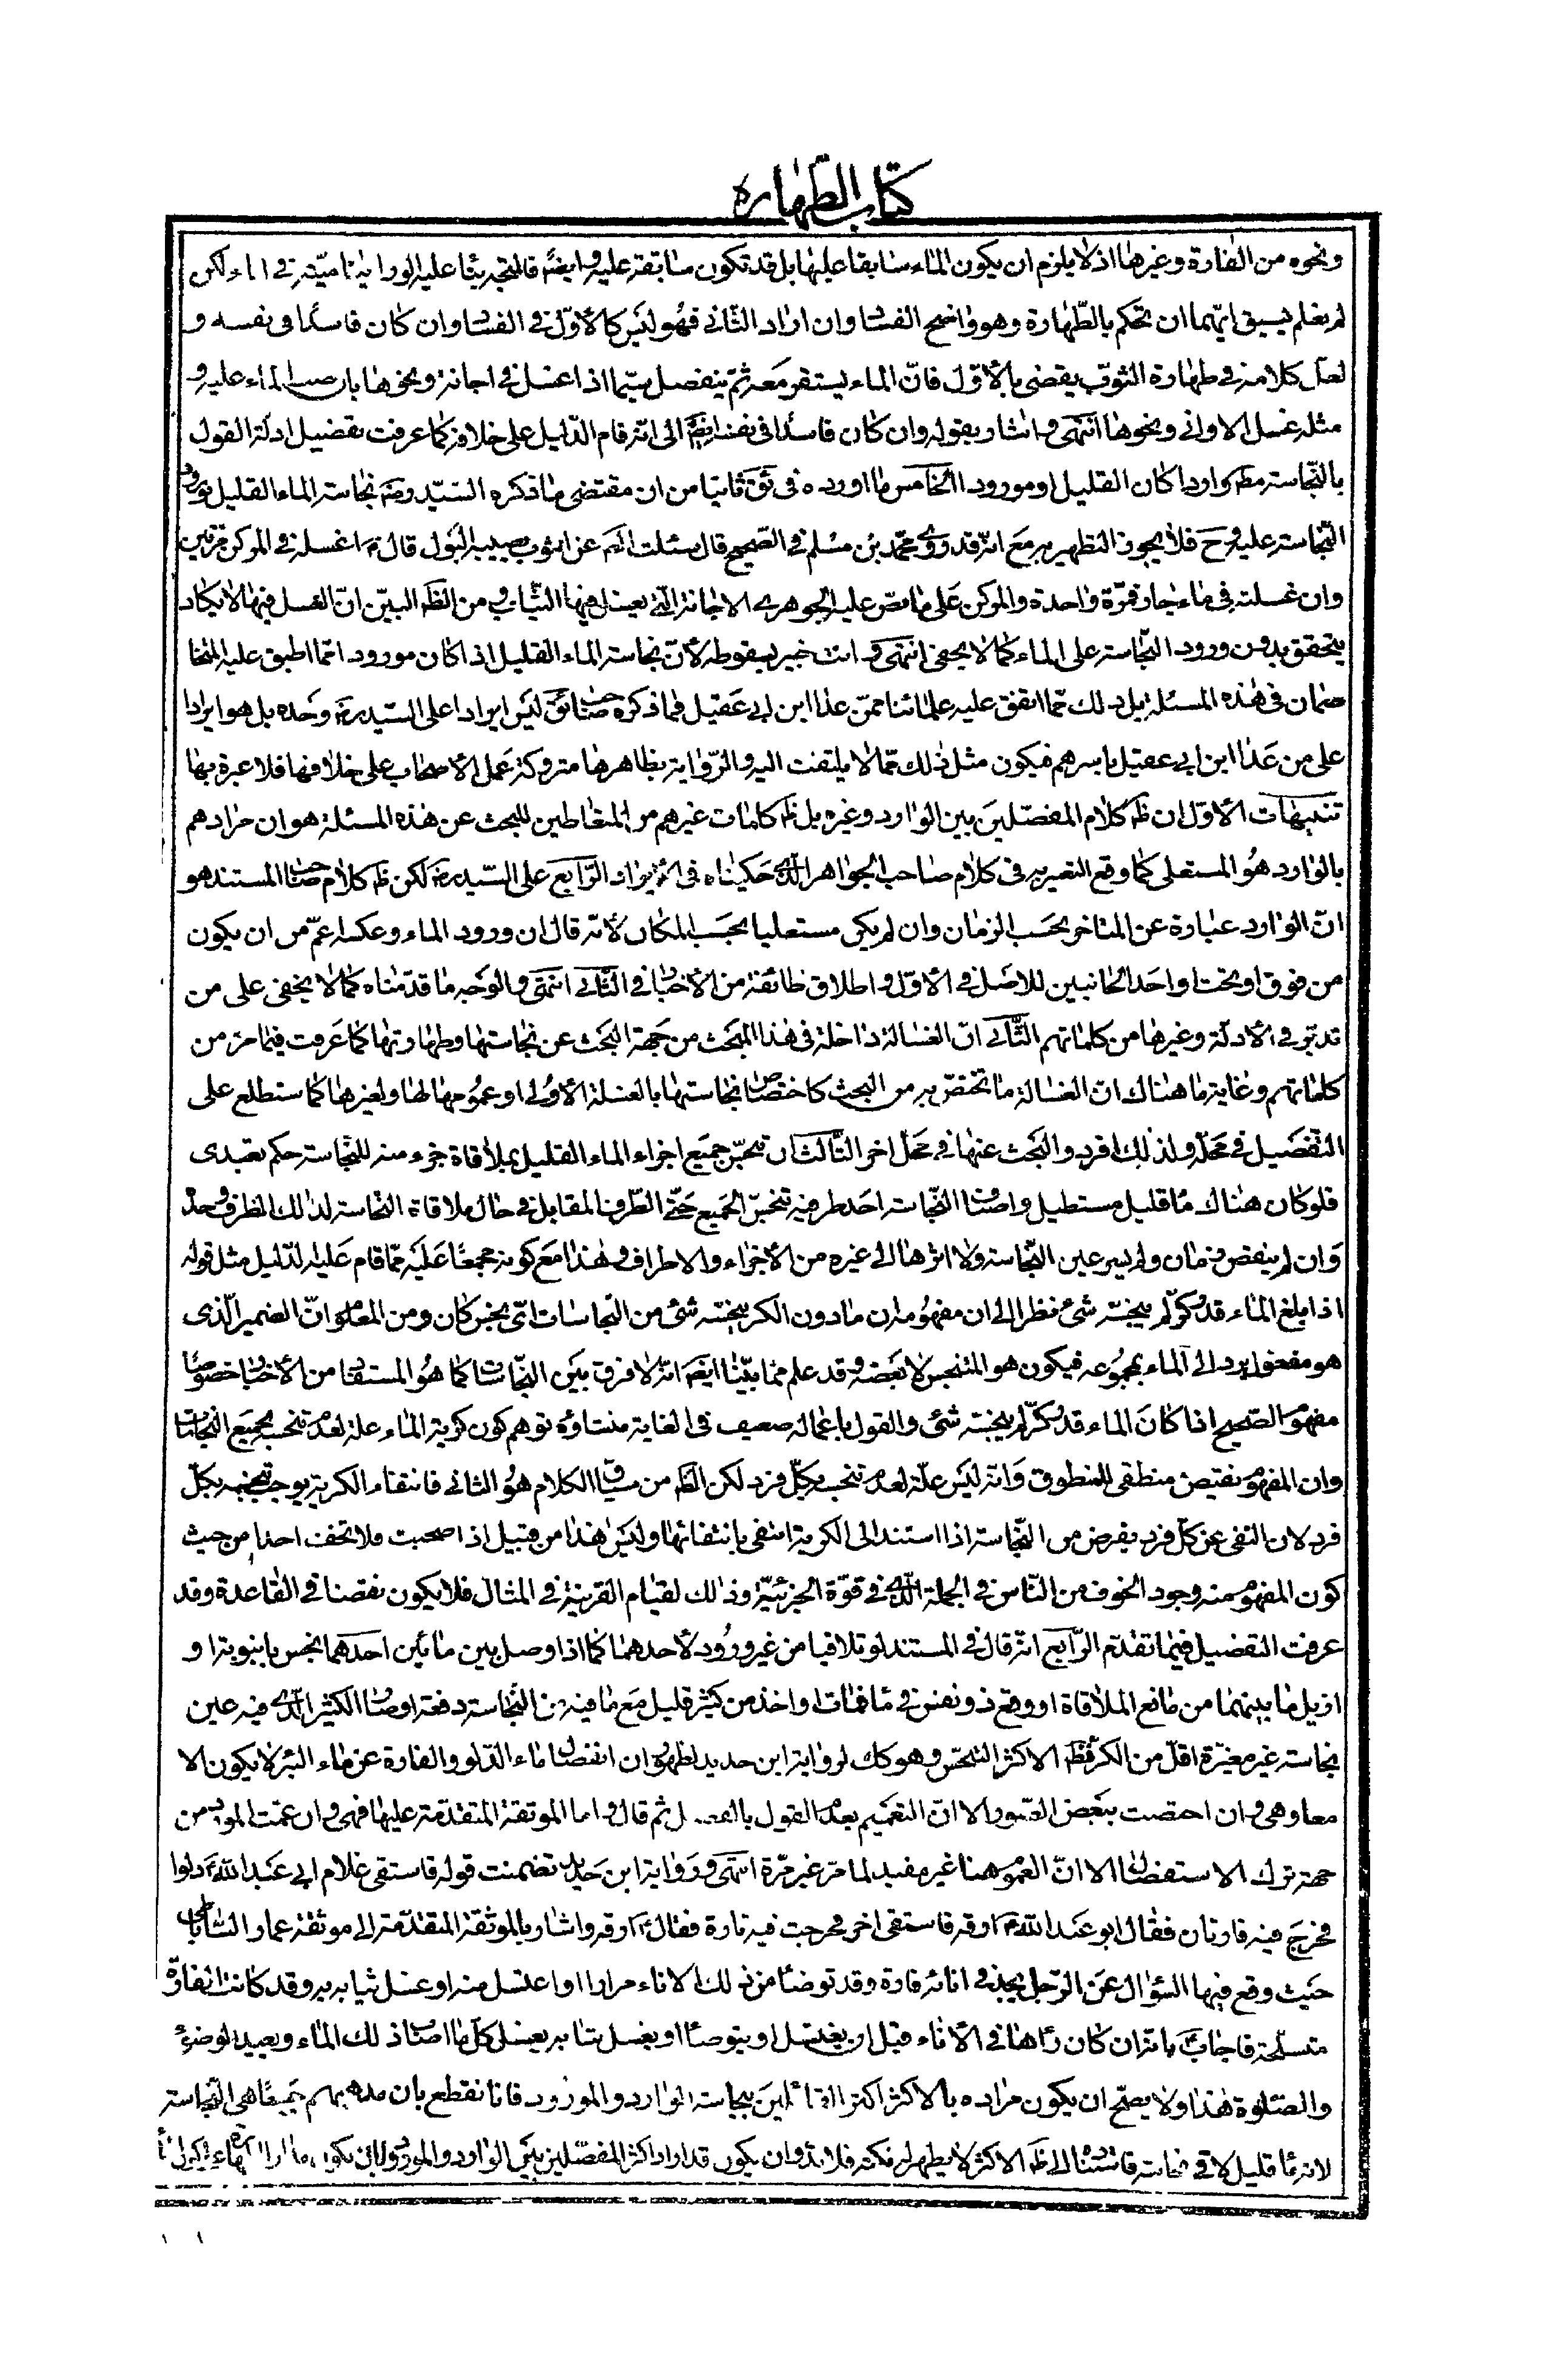 كتاب الطهارة
ونحوه من الفارة وغيرها اذ لا يلزم ان يكون الماء سابقا عليها بل قد تكون سابقة عليه وايضا فالمتجه بناء عليه لو راينا ميتة في الماء لكن
لم نعلم بسبق ايهما ان نحكم بالطهارة وهو واضح الفساد وان اراد الثاني فهو ليس كالأول في الفساد وان كان فاسدا في نفسه و
لعل كلامه في طهارة الثوب يقضى بالأول فان الماء يستقر معه ثم ينفصل سيما اذا غسل في اجانة ونحوها بان صب الماء عليه و
مثله غسل الاواني ونحوها انتهى واشار بقوله وان كان فاسدا في نفسه ايضا الى انه قام الدليل على خلافه كما عرفت تفصيل ادلة القول
بالنجاسة مط واردا كان القليل او مورودا الخامس ما اورده في ئق ثانيا من ان مقتضى ما ذكره السيد رضه نجاسة الماء القليل بورود
النجاسة عليه وح فلا يجوز التطهير به مع انه قد روى محمد بن مسلم في الصحيح قال سئلت ابا عن الثوب يصيبه البول قال اغسله في المركن مرتين
وان غسلته في ماء جار فمرة واحدة والمركن على ما نص عليه الجوهرى الاجانة التي يغسل فيها الثياب ومن الظم البين ان الغسل فيها لا يكاد
يتحقق بدون ورود النجاسة على الماء كما لا يخفى انتهى وانت خبير بسقوطه لأن نجاسة الماء القليل اذا كان مورودا مما اطبق عليه المتخا
صمان في هذه المسئلة بل ذلك مما اتفق عليه علمائنا ممن عدا ابن ابي عقيل فما ذكره صاحب ئق ليس ايرادا على السيد ره وحده بل هو ايراد
على من عدا ابن ابي عقيل باسرهم فيكون مثل ذلك مما لا يلتفت اليه والرواية بظاهرها متروكة عمل الأصحاب على خلافها فلا عبرة بها
تنبيهات الأول ان ظم كلام المفصلين بين الوارد وغيره بل ظم كلمات غيرهم من المتعاطين للبحث عن هذه المسئلة هو ان مرادهم
بالوارد هو المستعلى كما وقع التعبير به في كلام صاحب الجواهر الذي حكيناه في الايراد الرابع على السيد ره لكن ظم كلام صاحب المستند هو
ان الوارد عبارة عن المتاخر بحسب الزمان وان لم يكن مستعليا بحسب المكان لأنه قال ان ورود الماء وعكسه اعم من ان يكون
من فوق او تحت او احد الجانبين للاصل في الأول واطلاق طائفة من الأخبار في الثاني انتهى والوجه ما قدمناه كما لا يخفى على من
تدبر في الأدلة وغيرها من كلماتهم الثاني ان الغسالة داخلة في هذا المبحث من جهة البحث عن نجاستها وطهارتها كما عرفت فيما مر من
كلماتهم وغاية ما هناك ان الغسالة ما تختص به من البحث كاختصاص نجاستها بالغسلة الأولى او عمومها لها ولغيرها كما ستطلع على
التفصيل في محله ولذلك افرد والبحث عنها في محل اخر الثالث ان تنجس جميع اجزاء الماء القليل بملاقاة جزء منه للنجاسة حكم تعبدى
فلو كان هناك ماء قليل مستطيل واصاب النجاسة احد طرفيه تنجس الجميع حتى الطرف المقابل في حال ملاقاة النجاسة لذلك الطرف وحده
وان لم ينقض زمان ولم يسر عين النجاسة ولا اثرها الى غيره من الأجزاء والاطراف وهذا مع كونه مجمعا عليه مما قام عليه الدليل مثل قوله
اذا بلغ الماء قدر كر لم ينجسه شئ نظرا الى ان مفهومه ان ما دون الكر ينجسه شئ من النجاسات اى نجس كان ومن المعلوم ان الضمير الذى
هو مفعول يرد الى الماء بمجموعه فيكون هو المتنجس لا بعضه وقد علم مما بينا ايضا انه لا فرق بين النجاسات كما هو المستفاد من الأخبار خصوصا
مفهوم الصحيح اذا كان الماء قدر كر لم ينجسه شئ والقول باعماله ضعيف في الغاية منشاؤه توهم كون كرية الماء علة لعدم تنجسه بجميع النجاسات
وان المفهوم نقيض منطقى للمنطوق وانه ليس علة لعدم تنجسه بكل فرد لكن الظم من سياق الكلام هو الثاني فانتفاء الكرية يوجب تنجسه بكل
فرد لان النفى عن كل فرد يفرض من النجاسة اذا استند الى الكرية انتفى بانتفائها وليس هذا من قبيل اذا صحبت فلا تخف احدا من حيث
كون المفهوم منه وجود الخوف من الناس في الجملة الذى في قوة الجزئية وذلك لقيام القرينة في المثال فلا يكون نقضا في القاعدة وقد
عرفت التفصيل فيما تقدم الرابع انه قال في المستند لو تلاقيا من غير ورود لأحدهما كما اذا وصل بين مائين احدهما نجس بانبوبة او
ازيل ما بينهما من مانع الملاقاة او وقع ذو نفس في ماء فمات او اخذ من كثير قليل مع ما فيه من النجاسة دفعة او صار الكثير الذى فيه عين
نجاسة غير مغيرة اقل من الكر فظم الاكثر التنجس وهو كك لرواية ابن حديد لظهور ان انفصال ماء الدلو والفارة عن ماء البئر لا يكون الا
معا وهي وان اختصت ببعض الصور الا ان التعميم بعدم القول بالفصل ثم قال واما الموثقة المتقدمة عليها فهى وان عمت المورد من
جهة ترك الاستفصال الا ان العموم هنا غير مفيد لما مر غير مرة انتهى ورواية ابن حديد تضمنت قوله فاستقى غلام ابي عبد الله دلوا
فخرج فيه فارتان فقال ابو عبد الله ارقه فاستقى اخر فخرجت فيه فارة فقال ارقه واشار بالموثقة المتقدمة الى موثقة عمار الساباطى
حيث وقع فيها السؤال عن الرجل يجد في انائه فارة وقد توضأ من ذلك الاناء مرارا او اغتسل منه او غسل ثيابه وقد كانت الفارة
متسلخة فاجاب بانه ان كان رءاها في الأناء قبل ان يغتسل او يتوضأ او يغسل ثيابه يغسل كل ما اصاب ذلك الماء ويعيد الوضوء
والصلوة هذا ولا يصح ان يكون مراده بالاكثر اكثر القائلين بنجاسة الوارد والمورود فانا نقطع بان مذهبهم جميعا هي النجاسة
لانه ماء قليل لاقى نجاسة فاستثناء الى ظم الاكثر لا يظهر له نكتة فلا بد وان يكون قد اراد اكثر المفصلين بين الوارد والمورود